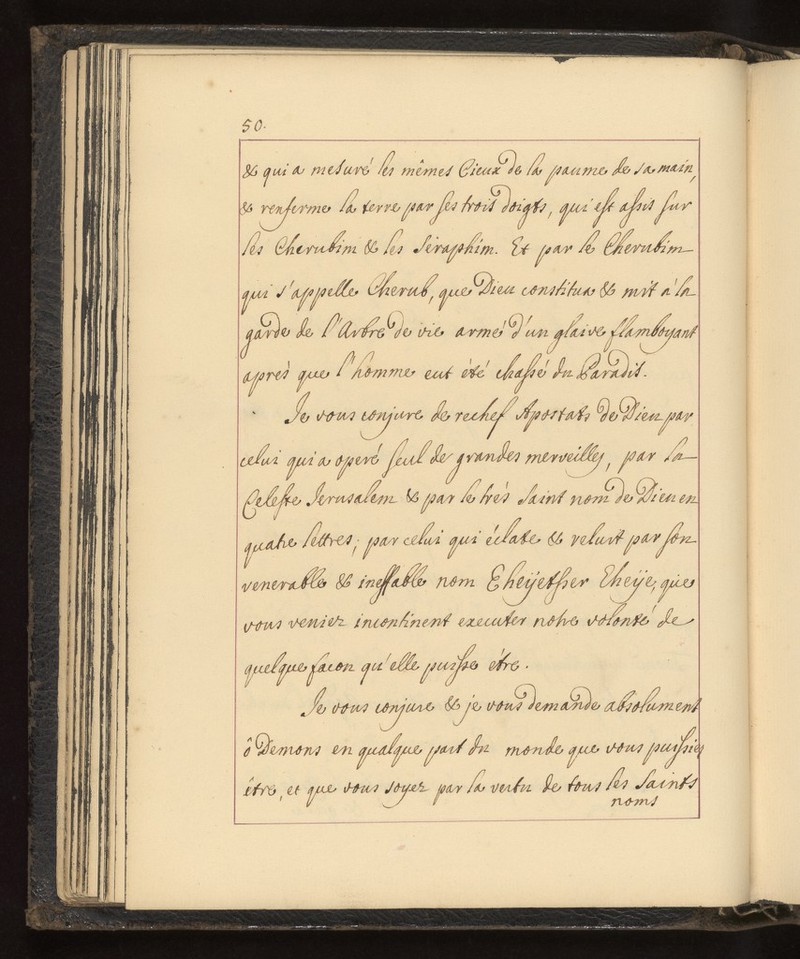 50.
& qui a mesuré les mêmes Cieux de la paume de sa main,
& renferme la terre par ses trois doigts, qui est assis sur
les Cherubim & les Seraphim. Et par le Cherubim
qui s'appelle Cherub, que Dieu constitua & mit a la
garde de l'Arbre de vie armé d'un glaive flamboyant
aprés que l'homme eut été chassé du Paradis.
Je vous conjure de rechef Apostats de Dieu par
celui qui a operé seul de grandes merveilles, par la
Celeste Jerusalem & par le trés Saint nom de Dieu en
quatre lettres; par celui qui éclate & reluit par son
venerable & ineffable nom Eheÿetsser Eheÿe, que
vous veniez incontinent executer notre volonté de
quelque facon qu'elle puisse étre.
Je vous conjure & je vous demande absolument
ô Démons en qualque part du monde que vous puissiez
étre, et que vous soyez par la vertu de tous les Saints
noms